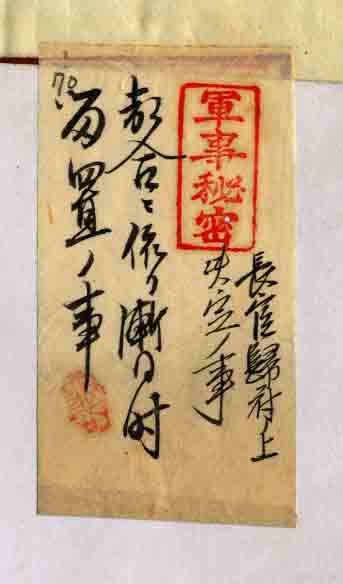 軍事秘密
長官歸府上
決定ノ事
都合ニ依リ漸時
留置ノ事
70